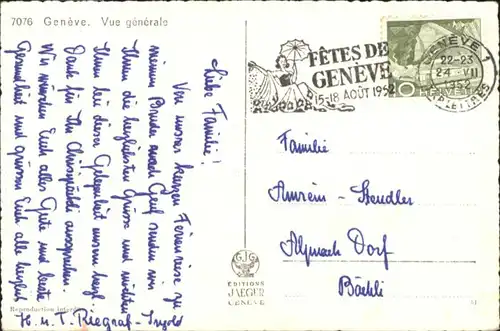 7076 Genève. Vue générale
Liebe Familie!
Von unserer kurzen Ferienreise zu
meinem Bruder nach Genf senden wir
Ihnen die herzlichsten Grüsse und möchten
Ihnen bei dieser Gelegenheit unsern herzl.
Dank für Ihr aussprechen.
Wir wünschen Euch alles Gute und beste
Gesundheit und grüssen Euch alle herzlich
H. u. T. Riegraf-Ingold
Reproduction interdite
FÊTES DE
GENÈVE
15-18 AOÛT 1952
GENÈVE 1
22-23
24. VII
LETTRES
10
HELVETIA
Familie
Amrein-Stendler
Alpnach Dorf
Bächli
EDITIONS
JAEGER
GENÈVE